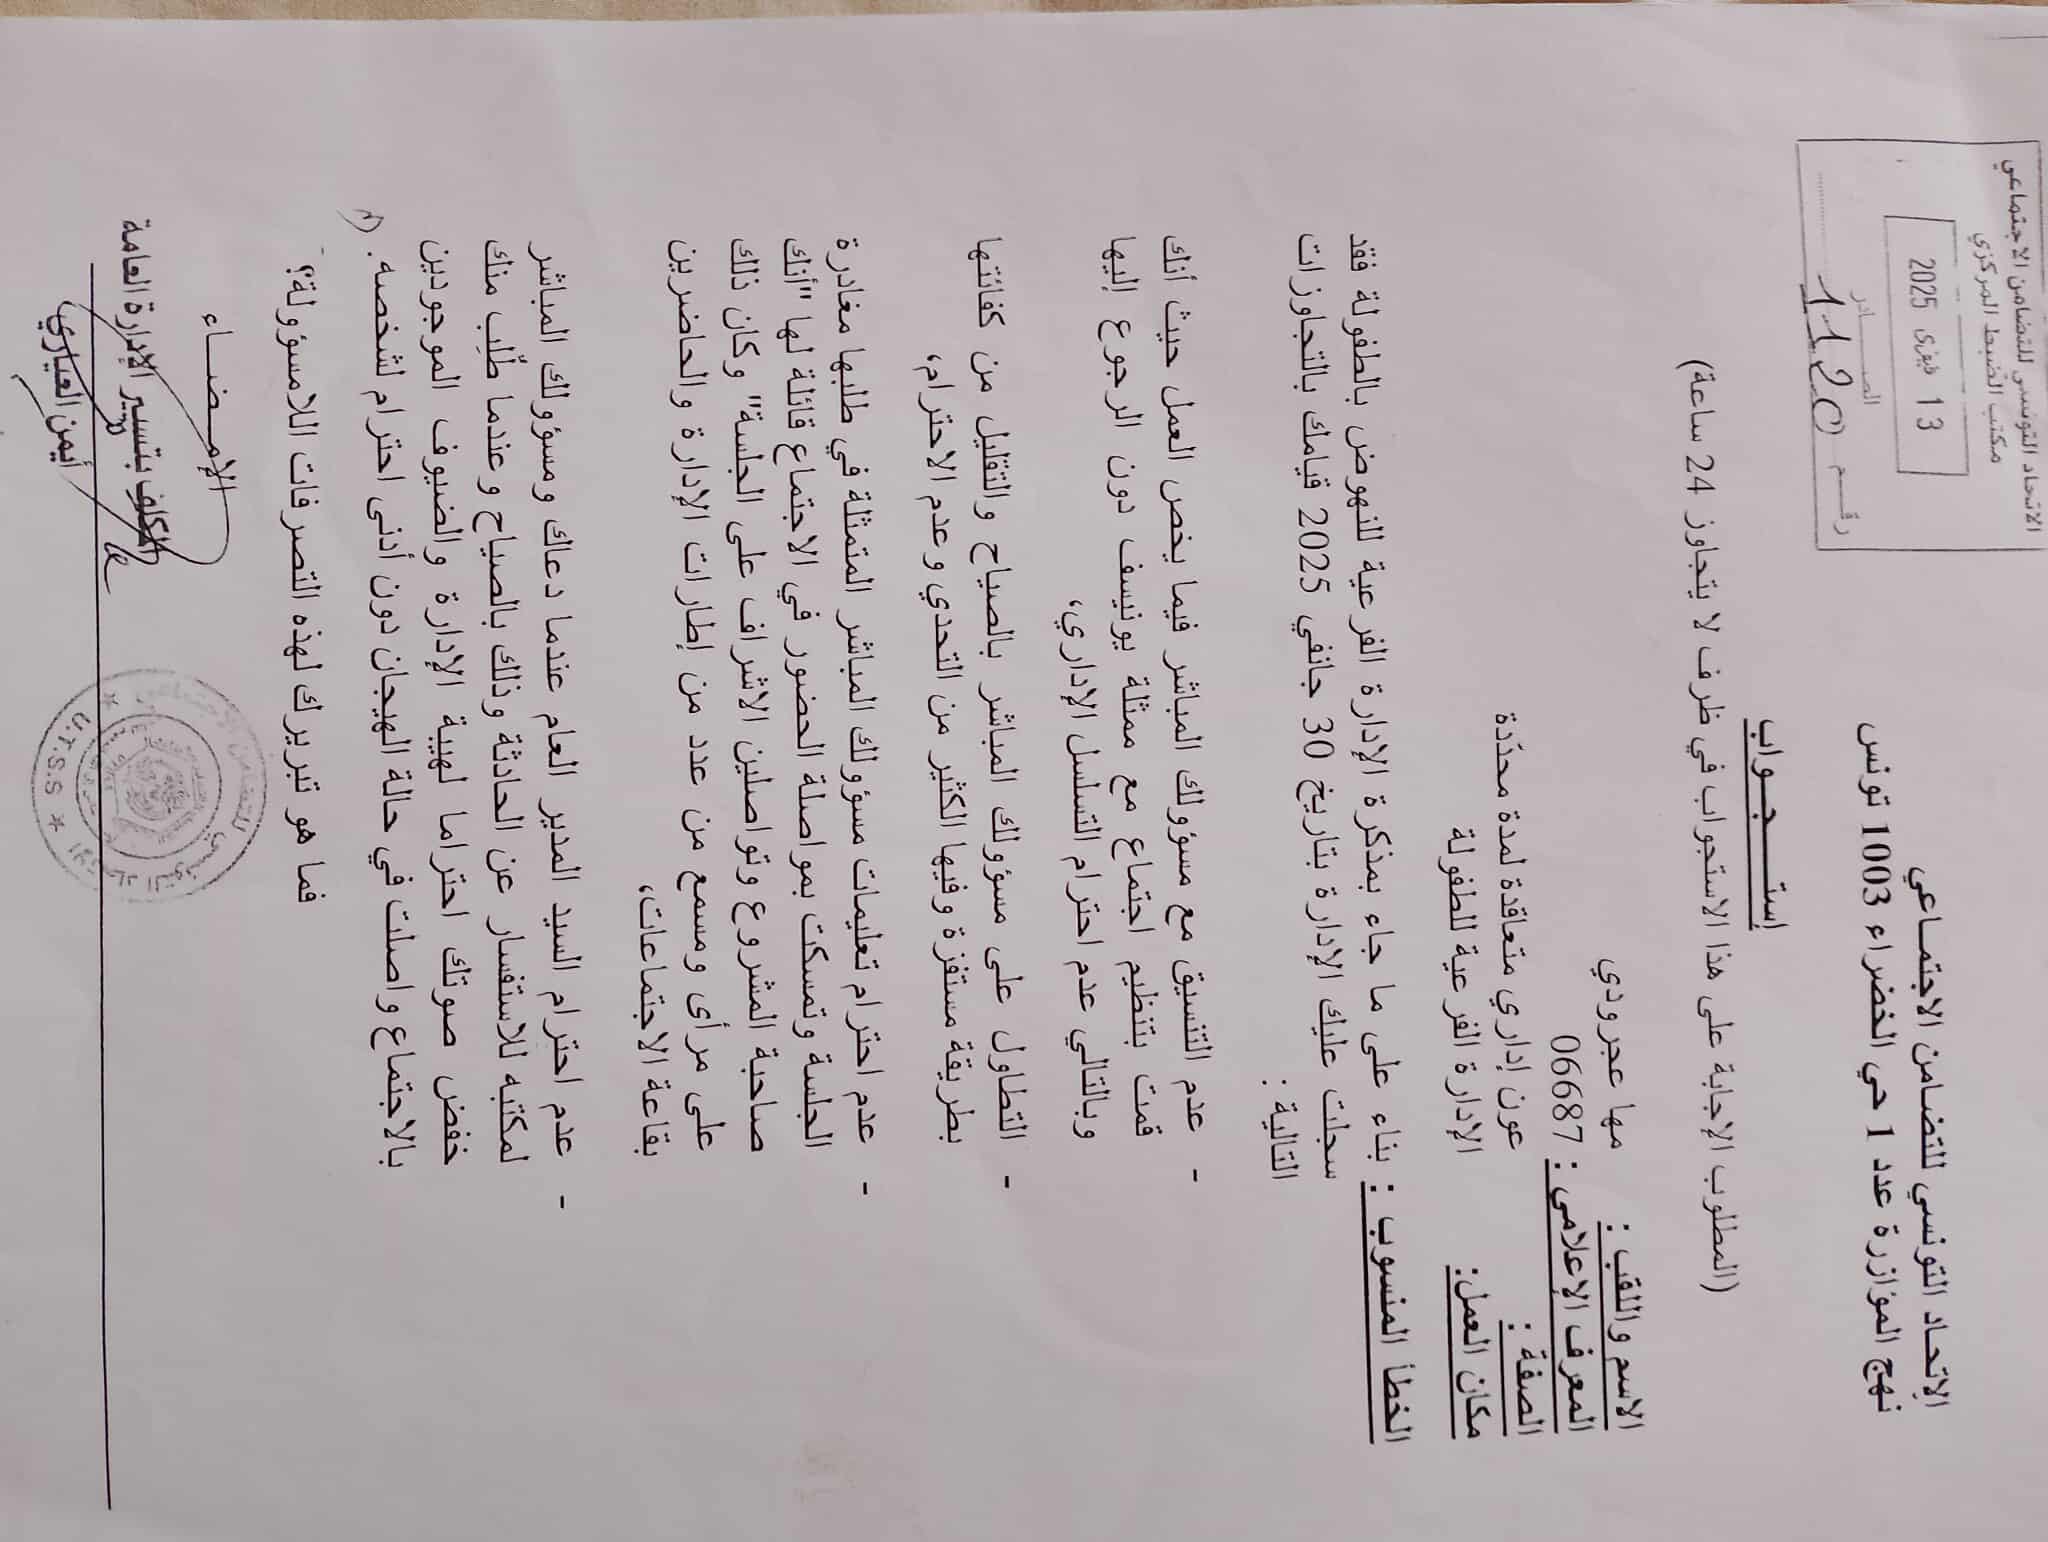 الاتحاد التونسي للتضامن الاجتماعي
مكتب الضبط المركزي
13 فيفري 2025
الصـــــادر
رقــم 1120
الإتحـاد التونسي للتضامن الاجتمـاعي
نهج المؤازرة عدد 1 حي الخضراء 1003 تونس
إستـــــجــواب
(المطلوب الإجابة على هذا الاستجواب في ظرف لا يتجاوز 24 ساعة)
الاسم واللقب : مها عجرودي
المعرف الإعلامي : 06687
الصفة : عون إداري متعاقدة لمدة محدّدة
مكان العمل: الإدارة الفرعية للطفولة
الخطأ المنسوب : بناء على ما جاء بمذكرة الإدارة الفرعية للنهوض بالطفولة فقد
سجلت عليك الإدارة بتاريخ 30 جانفي 2025 قيامك بالتجاوزات
التالية :
- عدم التنسيق مع مسؤولك المباشر فيما يخص العمل حيث أنك
قمت بتنظيم اجتماع مع ممثلة يونيسف دون الرجوع إليها
وبالتالي عدم احترام التسلسل الإداري،
- التطاول على مسؤولك المباشر بالصياح والتقليل من كفائتها
بطريقة مستفزة وفيها الكثير من التحدي وعدم الاحترام،
- عدم احترام تعليمات مسؤولك المباشر المتمثلة في طلبها مغادرة
الجلسة وتمسكت بمواصلة الحضور في الاجتماع قائلة لها "أنك
صاحبة المشروع وتواصلين الاشراف على الجلسة" وكان ذلك
على مرأى ومسمع من عدد من إطارات الإدارة والحاضرين
بقاعة الاجتماعات،
- عدم احترام السيد المدير العام عندما دعاك ومسؤولك المباشر
لمكتبه للاستفسار عن الحادثة وذلك بالصياح وعندما طُلِب منك
خفض صوتك احتراما لهيبة الإدارة والضيوف الموجودين
بالاجتماع واصلت في حالة الهيجان دون أدنى احترام لشخصه.
فما هو تبريرك لهذه التصرفات اللامسؤولة؟
الإمــضــاء
المكلف بتسيير الإدارة العامة
أيمن العياري
U.T.S.S